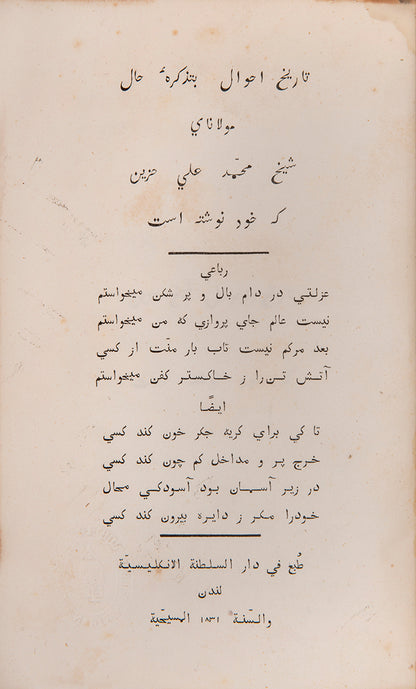 تاريخ احوال بتذكرهٔ حال
مولاناي
شيخ محمّد علي حزين
كه خود نوشته است
رباعي
عزلتي در دام بال و پر شكن ميخواستم
نيست عالم جاي پروازي كه من ميخواستم
بعد مركم نيست تاب بار منّت از كسي
آتش تن‌را ز خاكستر كفن ميخواستم
ايضًا
تا كي براي كريه جكر خون كند كسي
خرج پر و مداخل كم چون كند كسي
در زير آسمان بود آسودكي محال
خودرا مكر ز دايره بيرون كند كسي
طُبع في دار السلطنة الانكليسيّة
لندن
والسّنة ١٨٣١ المسيحيّة